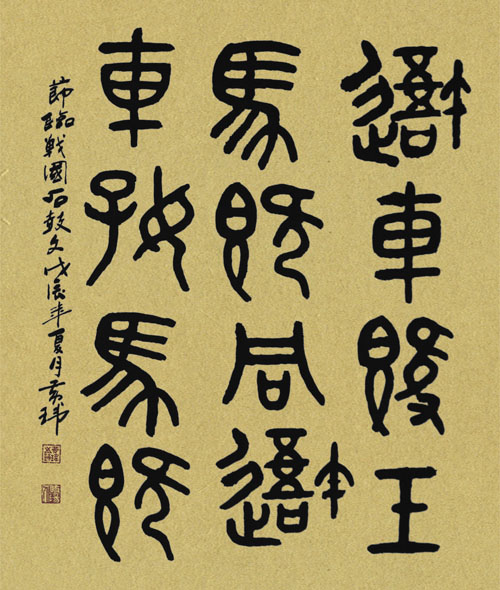 吾車既工
馬既同吾
車好馬既
節臨戰國石鼓文戊辰年夏月黄玮